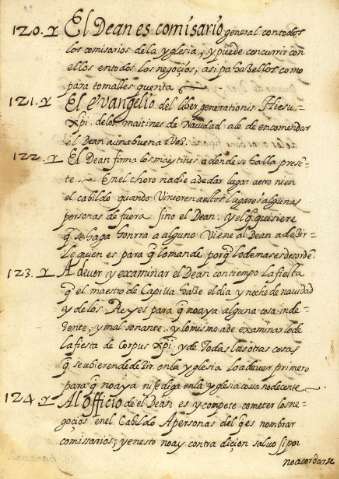 120. El Dean es comisario general con todos
los comisarios de la yglesia, y puede concurrir con
ellos en todos los negocios, asi para hacellos como
para tomalles quenta
121. El evangelio del liber generationis Ihesu
xpi. de los maitines de Navidad a de encomendar
el Dean a una buena
122. El Dean firma los adonde se halla prese-
te. En el choro nadie a de dar lugar a ero ni en
el cabildo quando Vinieren a el por lugar es algunas
personas de fuera sino el Dean. y el q. quisiere
q. se haga honrra a alguno Viene al Dean a dezir-
le quien es para q. lo mande porq. lo demas es desorde
123. A de ver y examinar el Dean con tiempo la fiesta
q. el maestro de Capilla haze el dia y noche de navidad
y de los Reyes para q. no aya alguna cosa inde-
cente, y mal sonante. y lo mismo a de examinar lo de
la fiesta de Corpus xpi. y de todas las otras cosas
q. se hubieren de dezir en la yglesia lo a de ver primero
para q. no aya ni se diga en la yglesia cosa no decente.
124. Al officio de el Dean es y compete cometer los ne-
gocios en el Cabildo A personas del q. es nombrar
comissarios; y en esto no ay contra dicion salvo si por
no acordarse